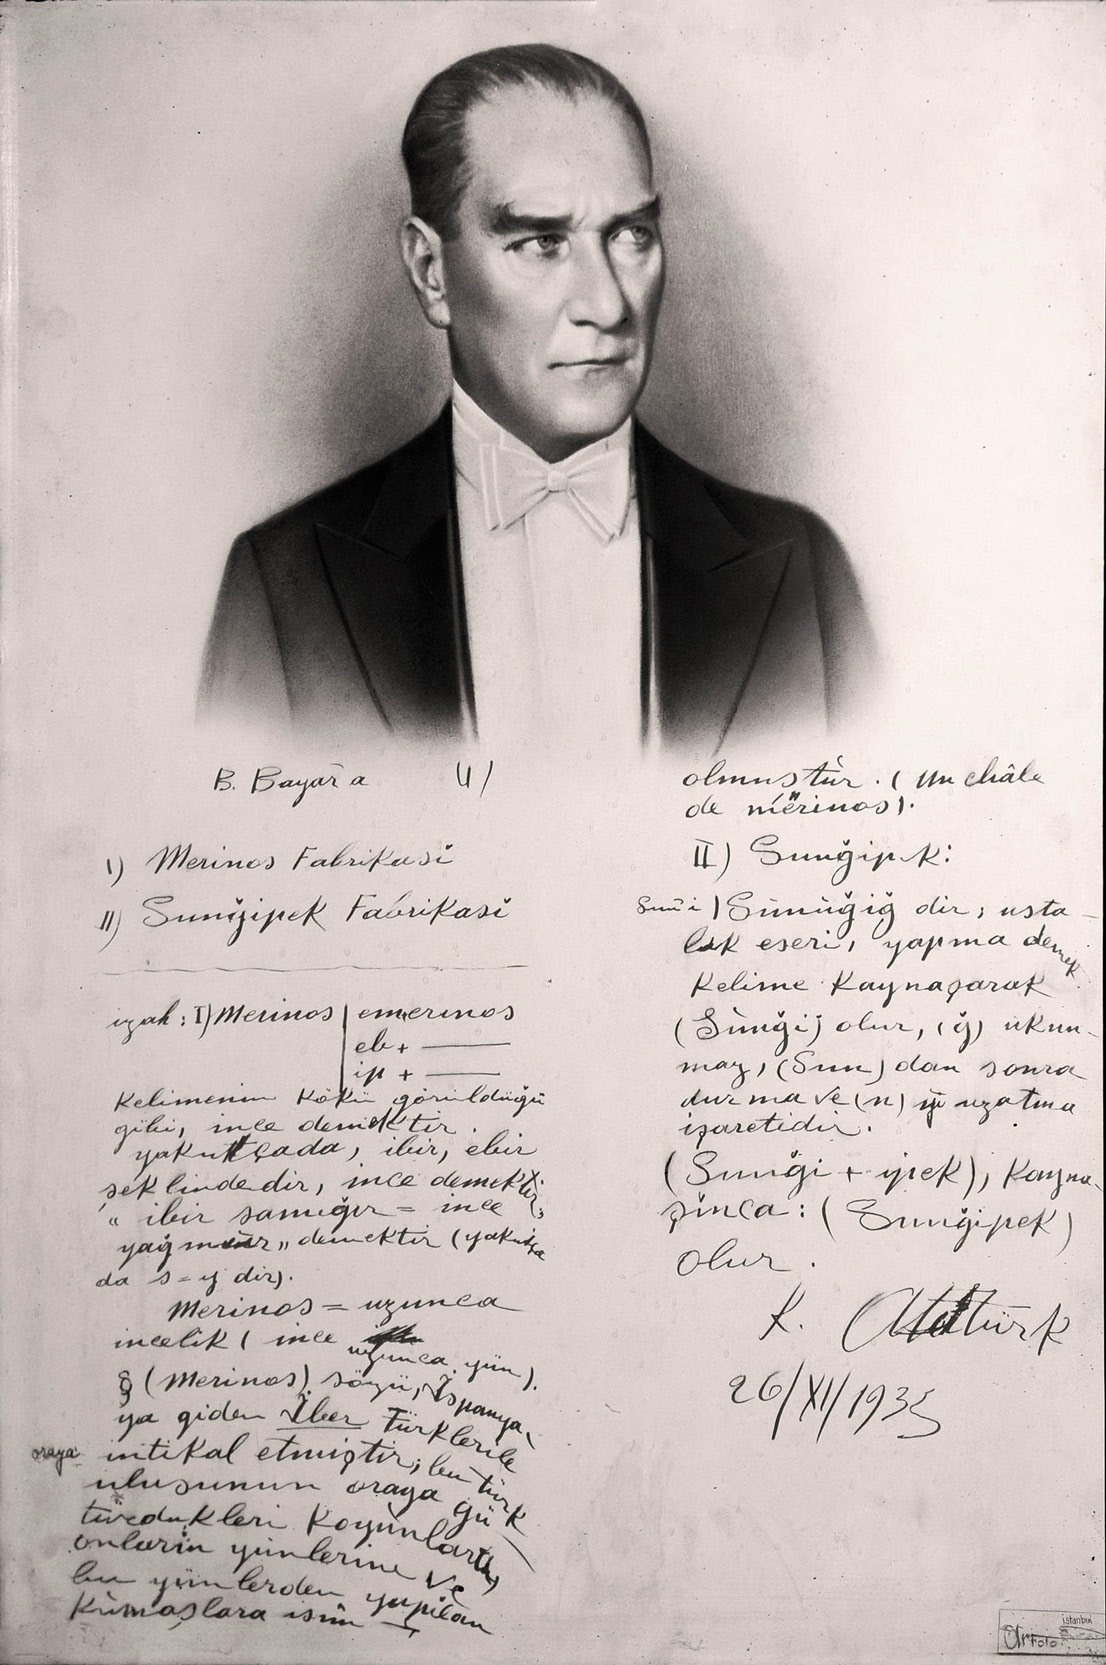 B. Bayar'a (1)
I) Merinos Fabrikasi
II) Sunğipek Fabrikasi
izah: I) Merinos | emerinos
eb + —
ip + —
Kelimenin Kökü görüldüğü
gibi, ince demektir.
yakutçada, ibir, ebir
şeklindedir, ince demektir;
" ibir samığır = ince
yağmur „ demektir (yakutça
da s = y dir).
Merinos = uzunca
incelik ( ince uzunca yün).
§ (Merinos) sözü, İspanya-
ya giden İber Türklerile
oraya intikal etmiştir; bu türk
ulusunun oraya gö-
türdükleri Koyunlara,
onların yünlerine ve
bu yünlerden yapılan
Kumaşlara isim
olmuştur. (Un châle
de mérinos).
II) Sunğipek:
Sun'i | Sünüğiğ dir; usta-
lık eseri, yapma demek
Kelime Kaynaşarak
(Sunği) olur, (ğ) okun-
maz, (Sun) dan sonra
durma ve (n) yi uzatma
işaretidir.
(Sunği + ipek), Kayna-
şınca: (Sunğipek)
olur.
K. Atatürk
26/XI/1935
Foto
istanbul